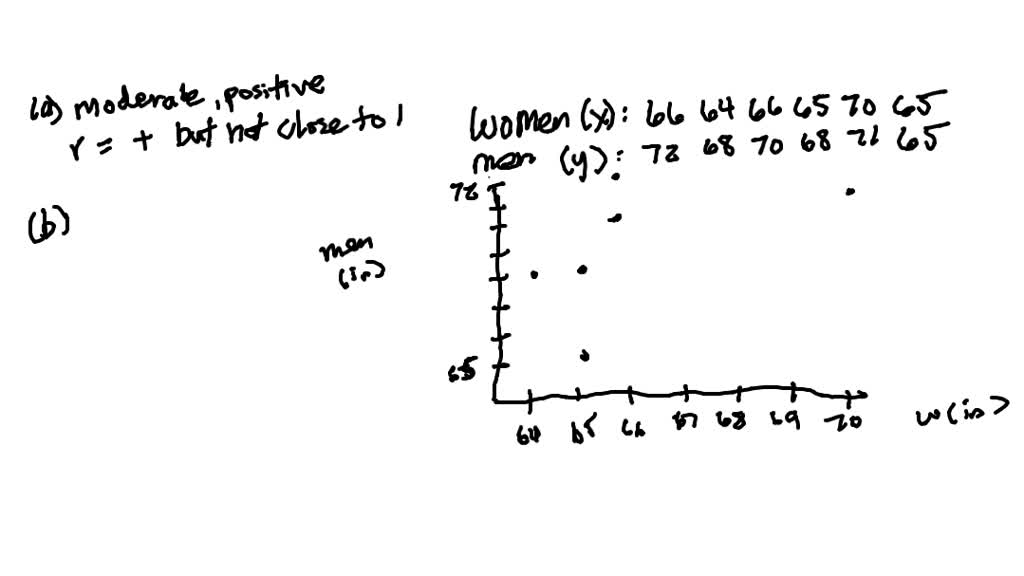 (a) moderate, positive
r = + but not close to 1
women (x): 66 64 66 65 70 65
men (y): 72 68 70 68 71 65
(b)
72
men
(in)
65
64 65 66 67 68 69 70 w (in)